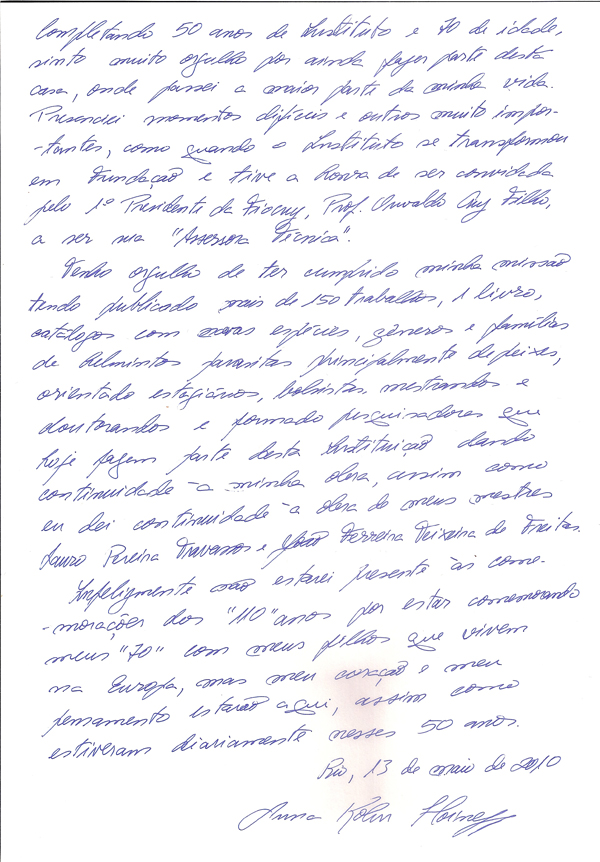 Completando 50 anos de Instituto e 70 de idade,
sinto muito orgulho por ainda fazer parte desta
casa, onde passei a maior parte da minha vida.
Presenciei momentos difíceis e outros muito impor-
-tantes, como quando o Instituto se transformou
em Fundação e tive a honra de ser convidada
pelo 1º Presidente da Fiocruz, Prof. Oswaldo Cruz Filho,
a ser sua "Assessora Técnica".
Tenho orgulho de ter cumprido minha missão
tendo publicado mais de 150 trabalhos, 1 livro,
catálogos com novas espécies, gêneros e famílias
de helmintos parasitas principalmente de peixes,
orientado estagiários, bolsistas, mestrandos e
doutorandos e formado pesquisadores que
hoje fazem parte desta Instituição dando
continuidade à minha obra, assim como
eu dei continuidade à obra de meus mestres
Lauro Pereira Travassos e João Ferreira Teixeira de Freitas.
Infelizmente não estarei presente às come-
-morações dos "110" anos por estar comemorando
meus "70" com meus filhos que vivem
na Europa, mas meu coração e meu
pensamento estarão aqui, assim como
estiveram diariamente nesses 50 anos.
Rio, 13 de maio de 2010
Anna Kohn Hoineff